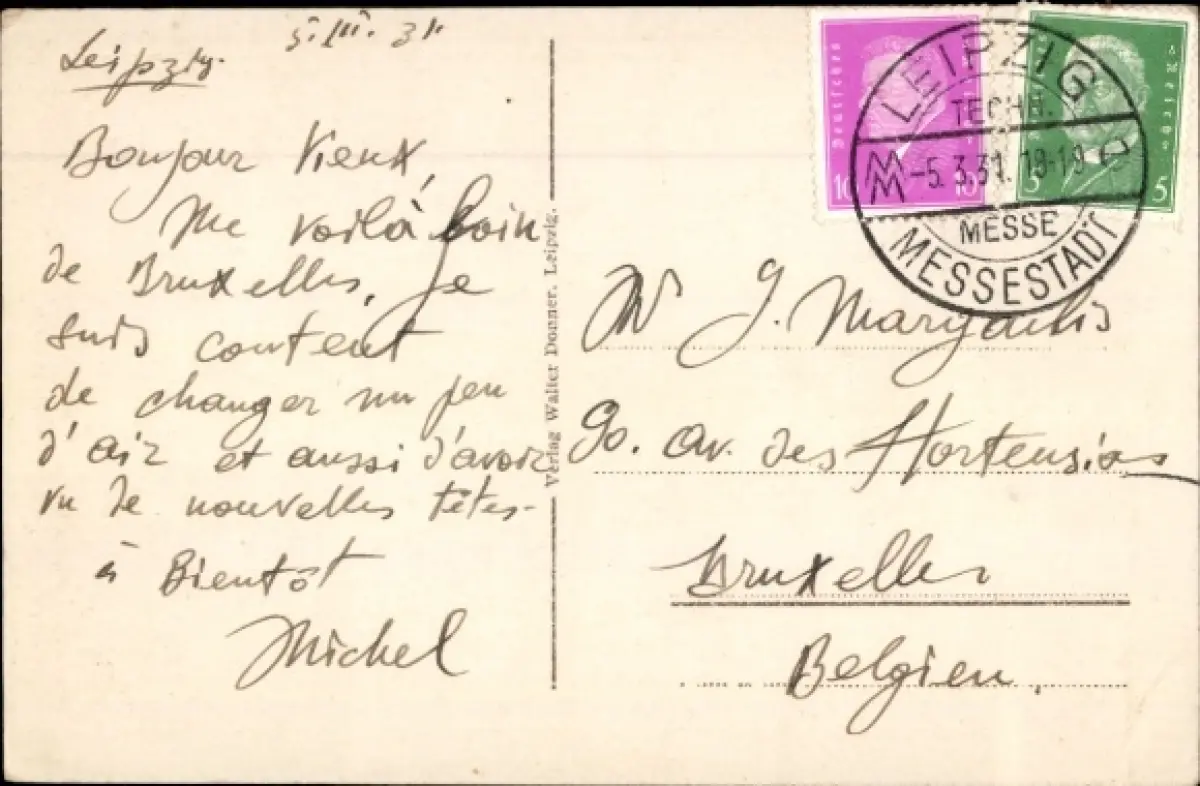 Leipzig.
5. III. 31.
Bonjour Vieux,
Me voilà loin
de Bruxelles, je
suis content
de changer un peu
d'air et aussi d'avoir
vu de nouvelles têtes-
à Bientôt
Michel
Verlag Walter Donner. Leipzig.
Deutsches
10 10
Reich
5 5
LEIPZIG
TECHN.
MM -5. 3.31. 18-19
MESSE
MESSESTADT
J.
90. av. des Hortensias
Bruxelles
Belgien.